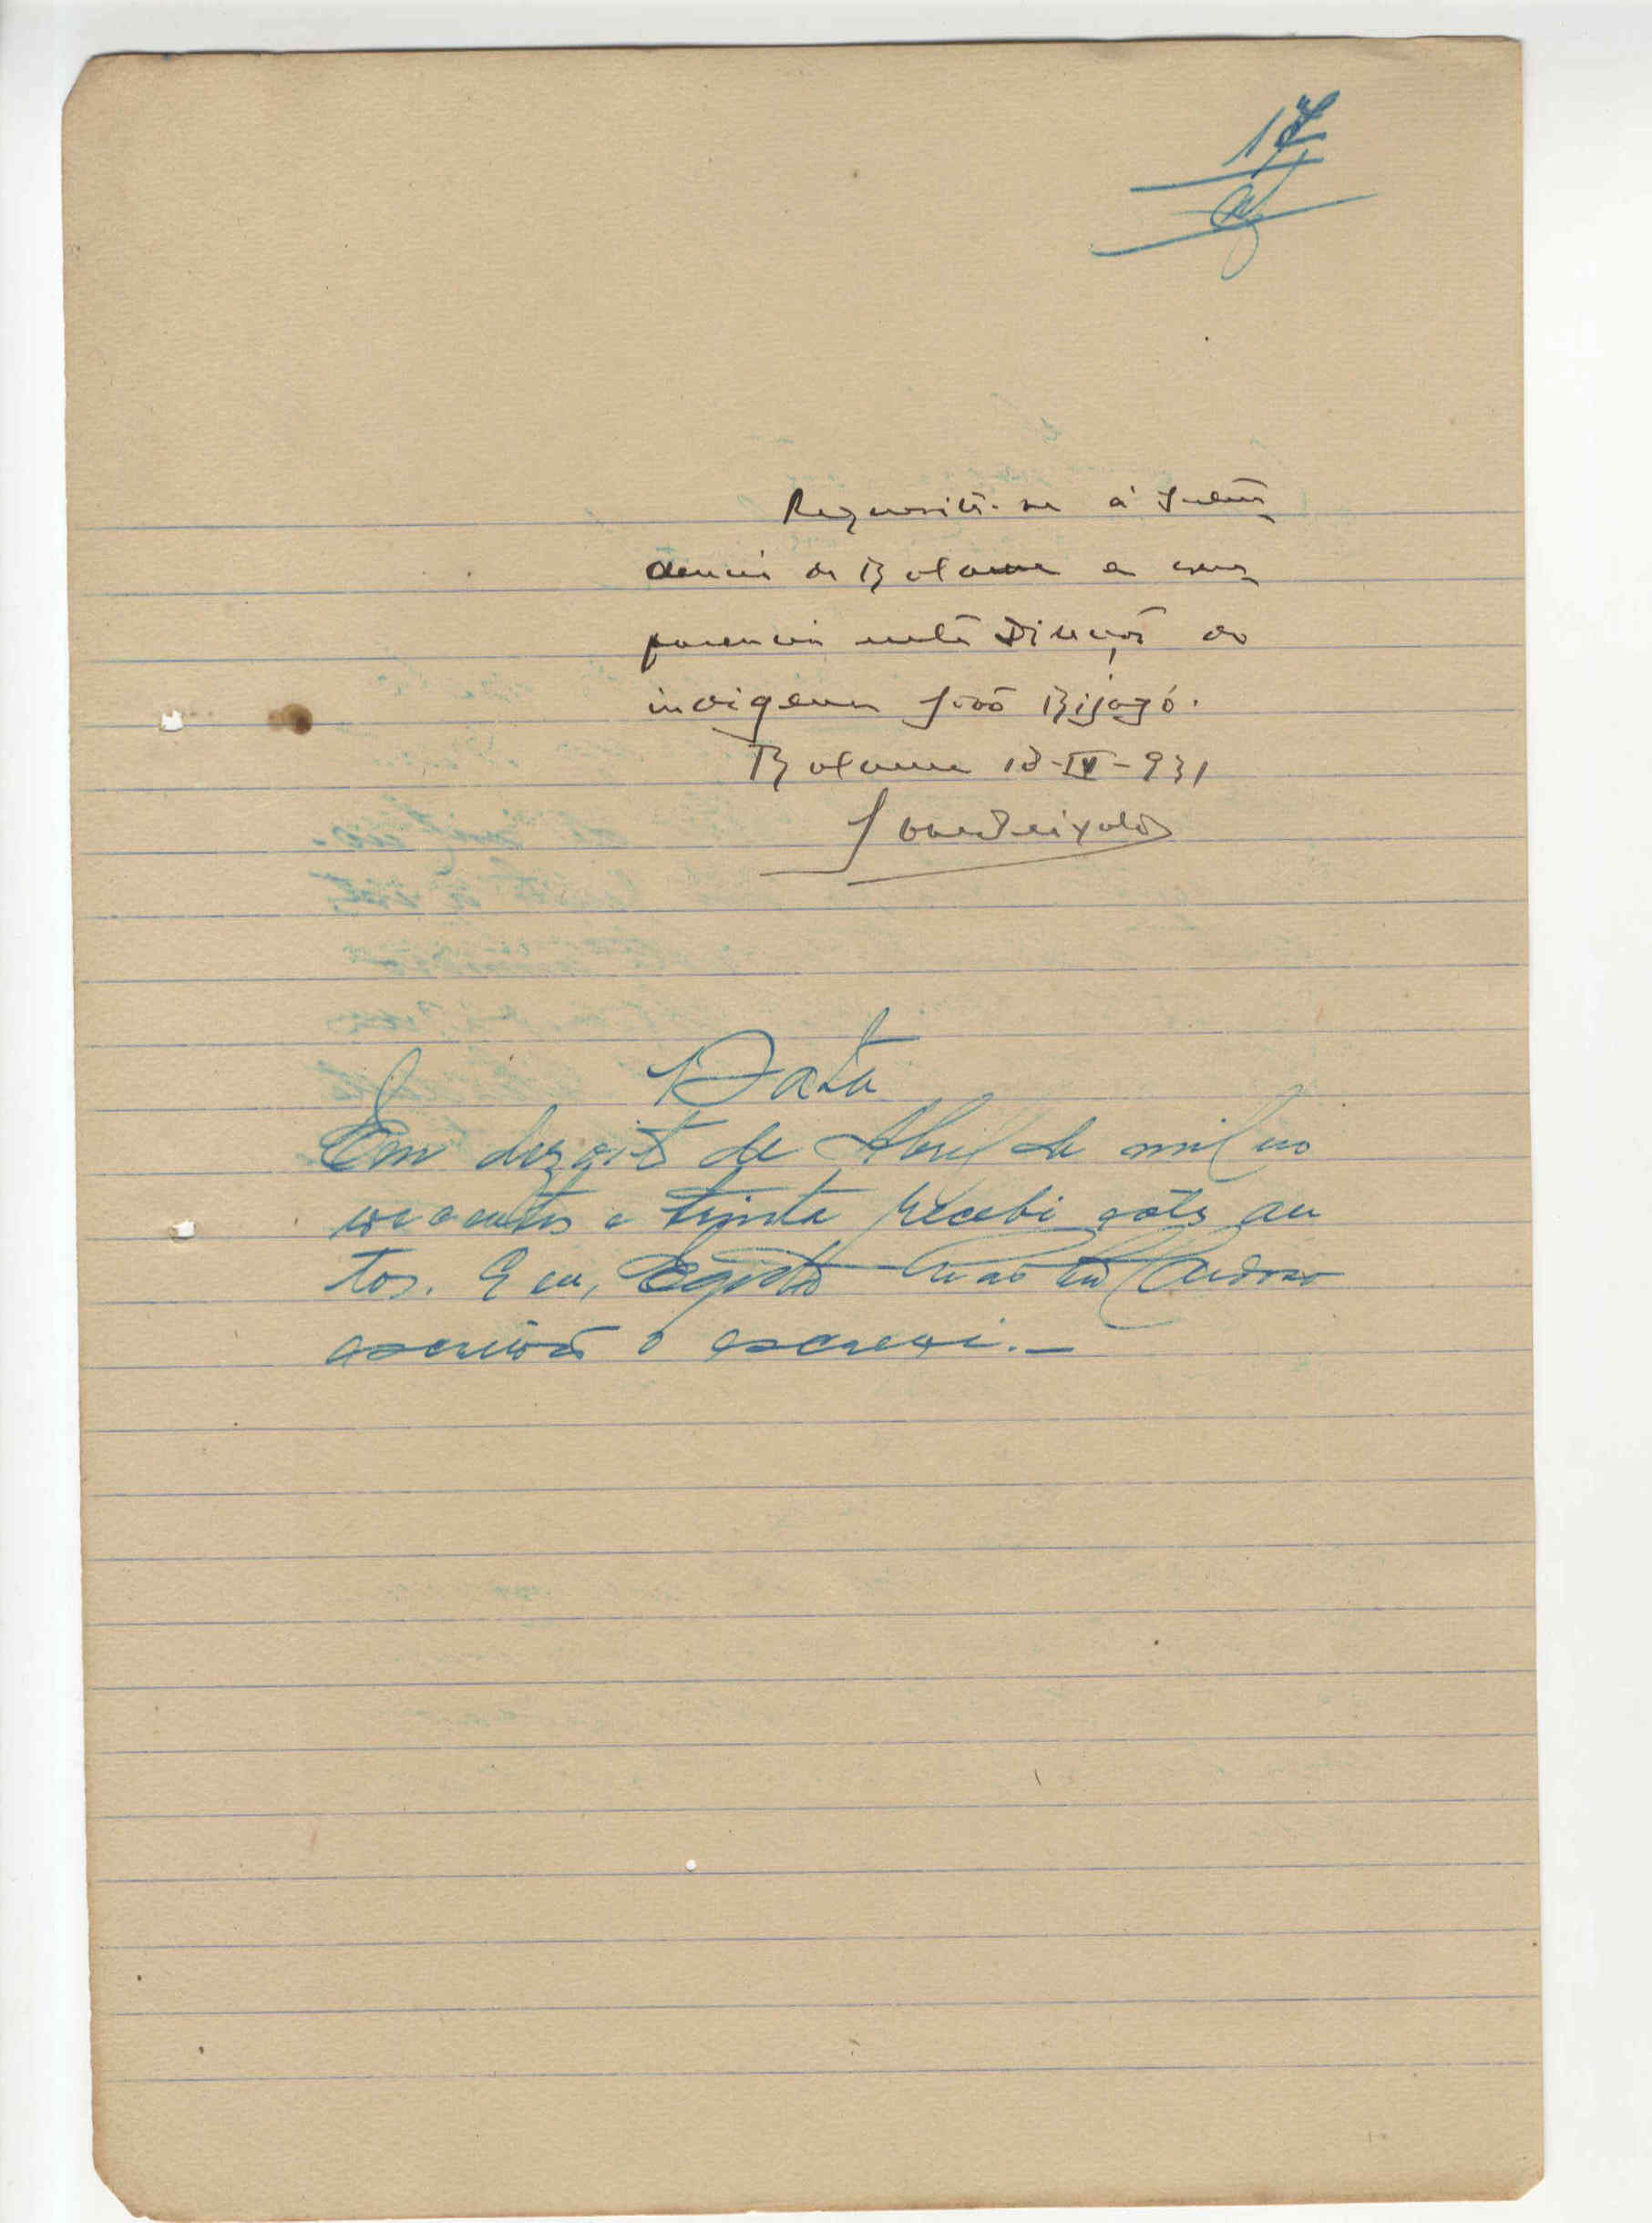 17
Requisite-se á Inten
dencia de Bolama a com
parencia nesta Direcção do
indigena João Bijagó.
Bolama 18-IV-931
Data
Em dezoito de Abril de mil no
vecentos e trinta recebi estes au
tos. E eu, Egipto Cardoso
escrivão o escrevi.—